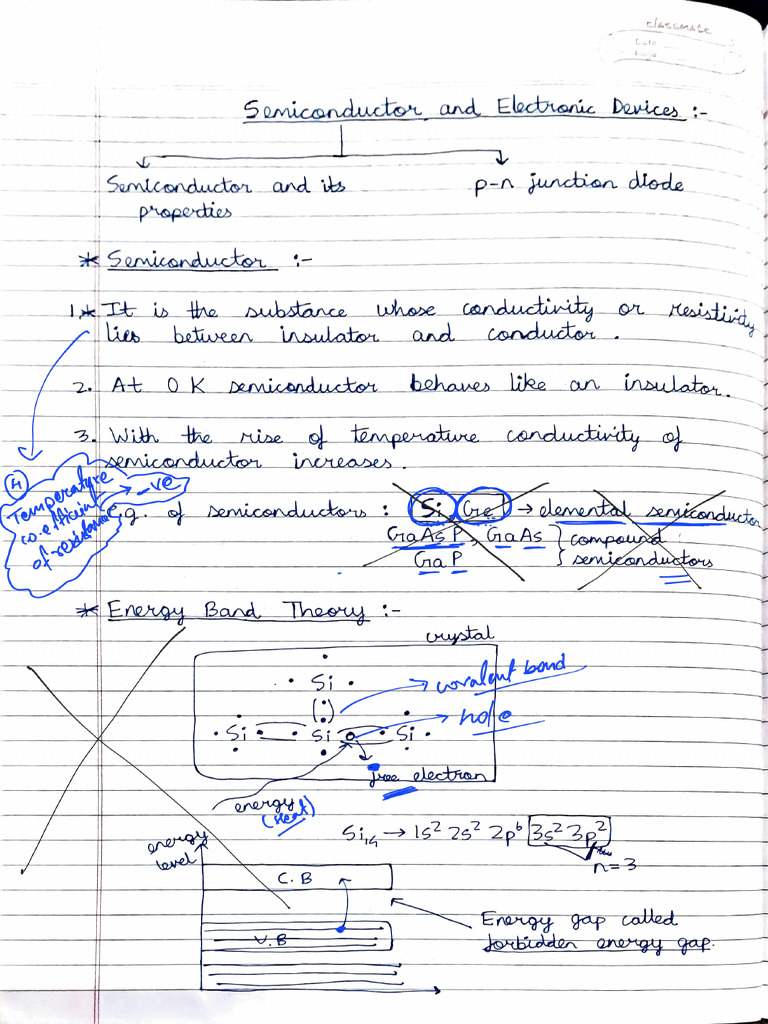 classmate
Date
Page
Semiconductor and Electronic Devices :-
Semiconductor and its
properties
p-n junction diode
* Semiconductor :-
1.* It is the substance whose conductivity or resistivity
lies between insulator and conductor.
2. At 0 K semiconductor behaves like an insulator.
3. With the rise of temperature conductivity of
semiconductor increases.
4 Temperature
co-efficient
of resistance → -ve
e.g. of semiconductors : Si, Ge → elemental semiconductor
GaAsP, GaAs } compound
GaP } semiconductors
* Energy Band Theory :-
crystal
Si
covalent bond
hole
Si Si Si
free electron
energy
(Heat)
Si₁₄ → 1s² 2s² 2p⁶ 3s² 3p²
n=3
energy
level
C.B
V.B
Energy gap called
forbidden energy gap.